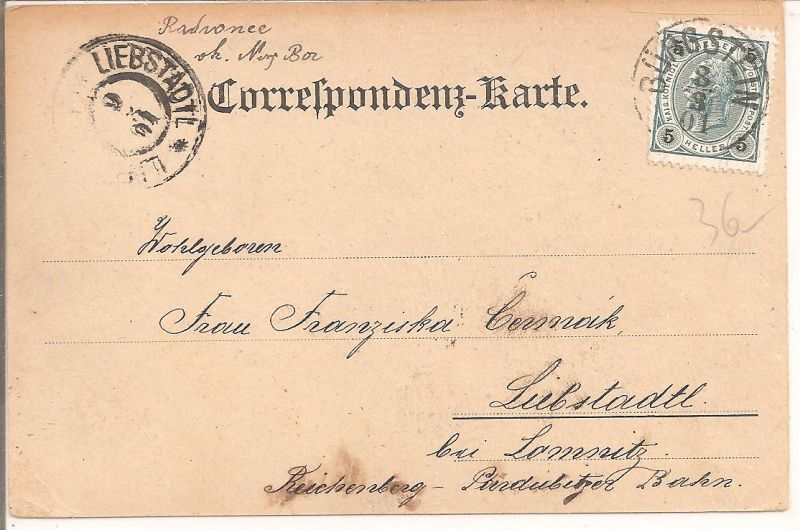 Radvonec
ok. Nový Bor
LIEBSTADTL
Correspondenz-Karte.
BÜRGSTEIN
01
5 5
KAIS. KÖNIGL. POST
5 HELLER 5
36
Wohlgeboren
Frau Franziska Čermák
Liebstadtl.
bei Lomnitz.
Reichenberg - Pardubitzer Bahn.